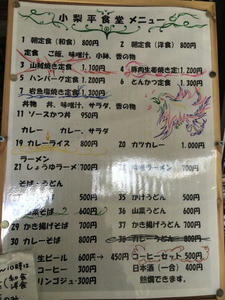 小梨平食堂メニュー
1 朝定食(和食) 800円 2 朝定食(洋食) 800円
定食 ご飯、味噌汁、小鉢、香の物
3 山賊焼き定食 1,100円 4 豚肉生姜焼き定食 1,200円
5 ハンバーグ定食 1,200円 6 とんかつ定食 1,300円
7 岩魚塩焼き定食
丼物 丼、味噌汁、サラダ、香の物
11 ソースかつ丼 950円
カレー カレー、サラダ
19 カレーライス 800円 20 カツカレー
ラーメン
21 しょうゆラーメン 700円
そば・うどん
600円 35 かけうどん 500円
600円 36 山菜うどん 600円
29 かき揚げそば 700円 37 かき揚げうどん 700円
30 カレーそば 800円 38 カレーうどん 800円
生ビール 600円→450円 コーヒーセット 500円
コーヒー 300円 日本酒(一合) 400円
リンゴジュース 300円 熱燗できます。